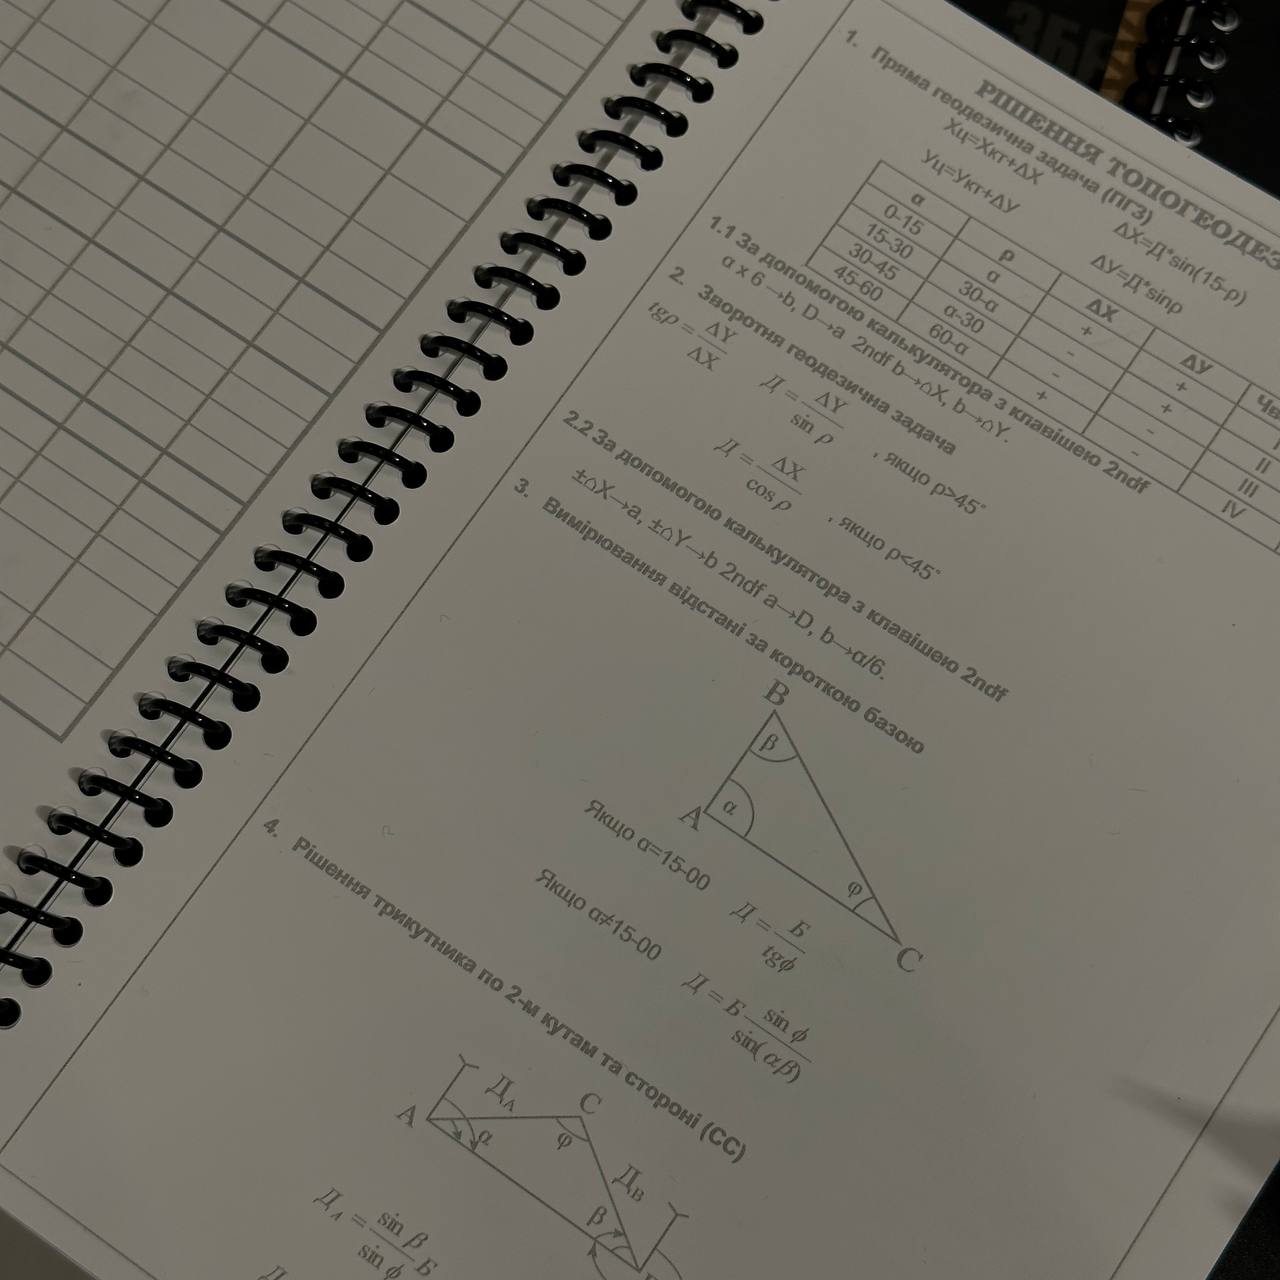 ЗБЕ
РІШЕННЯ ТОПОГЕОДЕЗ
1. Пряма геодезична задача (ПГЗ)
Хц=Хкт+ΔХ ΔХ=Д*sin(15-ρ)
Уц=Укт+ΔУ ΔУ=Д*sinρ
α ρ ΔХ ΔУ Че
0-15 α + + I
15-30 30-α - + II
30-45 α-30 - - III
45-60 60-α + - IV
1.1 За допомогою калькулятора з клавішею 2ndf
α x 6→b, D→a 2ndf b→△X, b→△Y.
2. Зворотня геодезична задача
tgρ = ΔY / ΔX
Д = ΔY / sin ρ , якщо ρ>45°
Д = ΔX / cos ρ , якщо ρ<45°
2.2 За допомогою калькулятора з клавішею 2ndf
±△X→a, ±△Y→b 2ndf a→D, b→α/6.
3. Вимірювання відстані за короткою базою
B
β
A α
φ
C
Якщо α=15-00 Д = Б / tgϕ
Якщо α≠15-00 Д = Б sin ϕ / sin(αβ)
4. Рішення трикутника по 2-м кутам та стороні (СС)
A ДА C
α φ
ДВ
β
ДА = sin β / sin ϕ Б